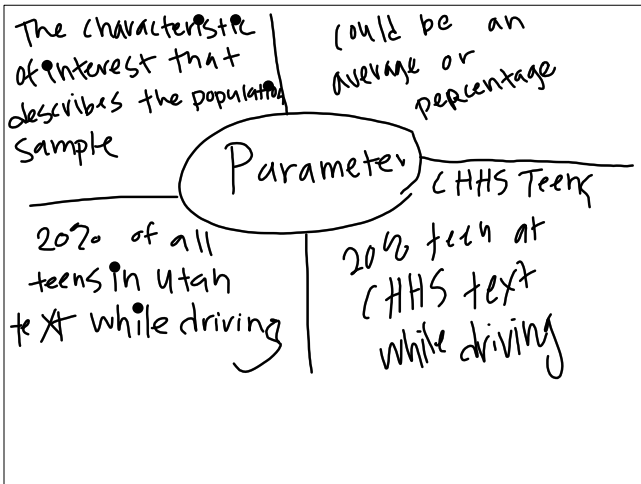 The characteristic
of interest that
describes the population
sample
could be an
average or
percentage
Parameter
20% of all
teens in Utah
text while driving
CHHS Teens
20% teen at
CHHS text
while driving